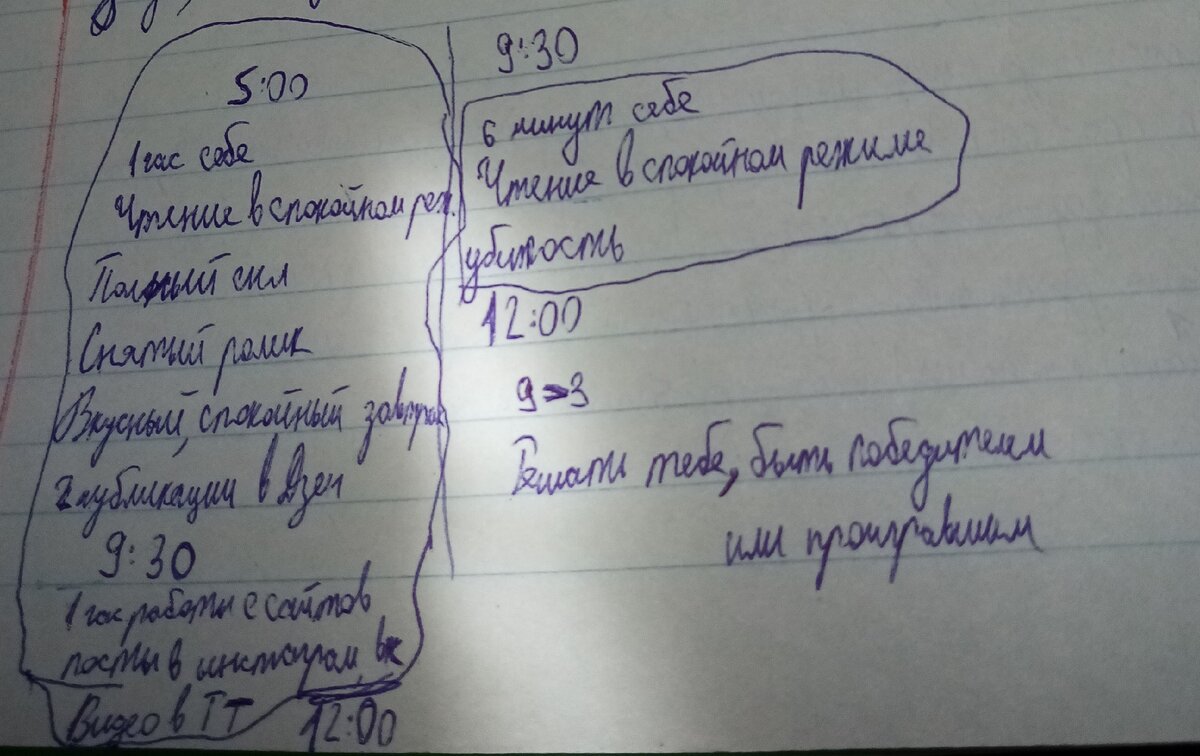 5:00
1 час себе
Чтение в спокойном реж.
Полный сил
Снятый ролик
Вкусный, спокойный завтрак
2 публикации в Дзен
9:30
1 час работы с сайтов
посты в инстаграм, вк
Видео в ТТ
12:00
9:30
6 минут себе
Чтение в спокойном режиме
убитость
12:00
9 > 3
Решать тебе, быть победителем
или проигравшим